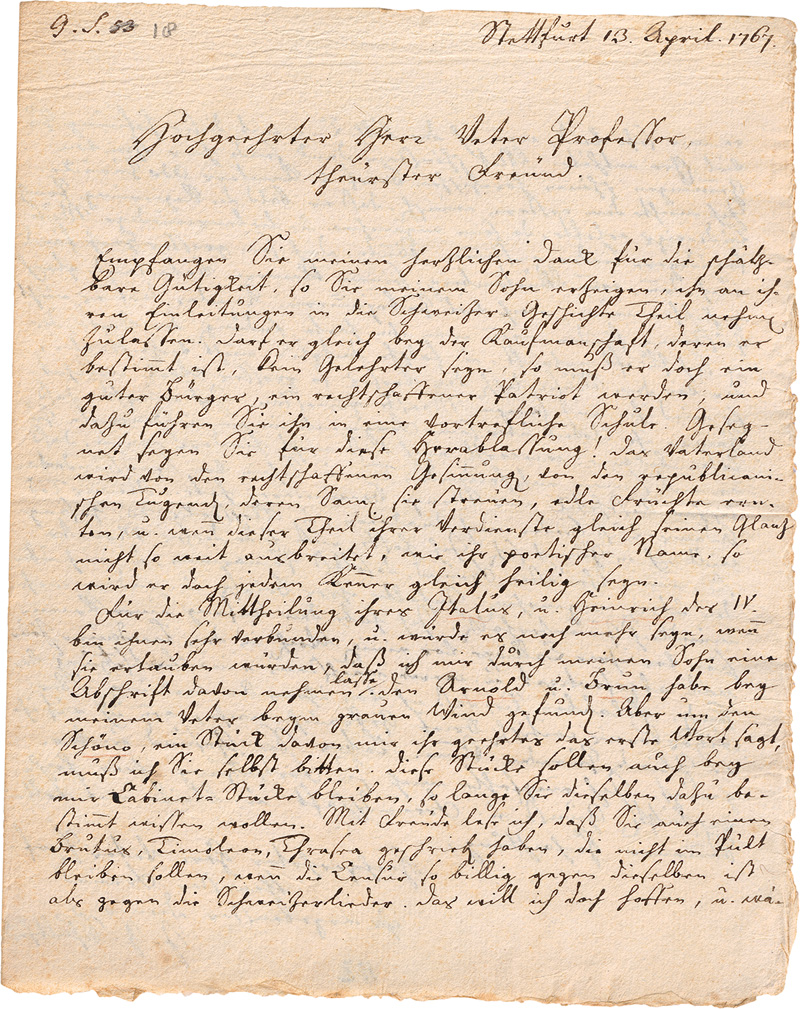 9. S. 53 18
Stettfurt 13. April. 1767.
Hochgeehrter Herr Veter Professor,
theürster Freünd.
Empfangen Sie meinen hertzlichen Dank für die schätz-
bare Gütigkeit, so Sie meinem Sohn erzeigen, ihn an ih-
ren Einleitungen in die Schweitzer-Geschichte Theil nehmen
zulassen. darf er gleich bey der Kaufmanschaft, deren er
bestimmt ist, kein Gelehrter seyn, so muß er doch ein
guter Bürger, ein rechtschaffener Patriot werden; und
dazu führen Sie ihn in eine vortrefliche Schule. Geseg-
net seyen Sie für diese Herablassung! das Vaterland
wird von den rechtschaffenen Gesinnungen, von den republicani-
schen Tugenden, deren Samen sie streuen, edle Früchte ern-
ten, u. wenn dieser Theil ihrer Verdienste gleich seinen Glanz
nicht so weit ausbreitet, wie ihr poetischer Name, so
wird er doch jedem Kenner gleich heilig seyn.
Für die Mittheilung ihres Italus, u. Heinrich des IV.
bin ihnen sehr verbunden, u. würde es noch mehr seyn, wenn
sie erlauben würden, daß ich mir durch meinen Sohn eine
Abschrift davon nehmen lasse. den Arnold u. Brun habe bey
meinem Veter beym grauen Wind gefunden. Aber um den
Schöno, ein Stück davon mir ihr geehrtes das erste Wort sagt,
muß ich Sie selbst bitten. diese Stücke sollen auch bey
mir Cabinet-Stücke bleiben, so lange Sie dieselben dazu be-
stimmt wissen wollen. Mit Freude lese ich, daß Sie auch einen
Brutus, Timoleon, Thrasea geschrieben haben, die nicht im Pult
bleiben sollen, wenn die Censur so billig gegen dieselben ist
als gegen die Schweitzerlieder. das will ich doch hoffen, u. wä-